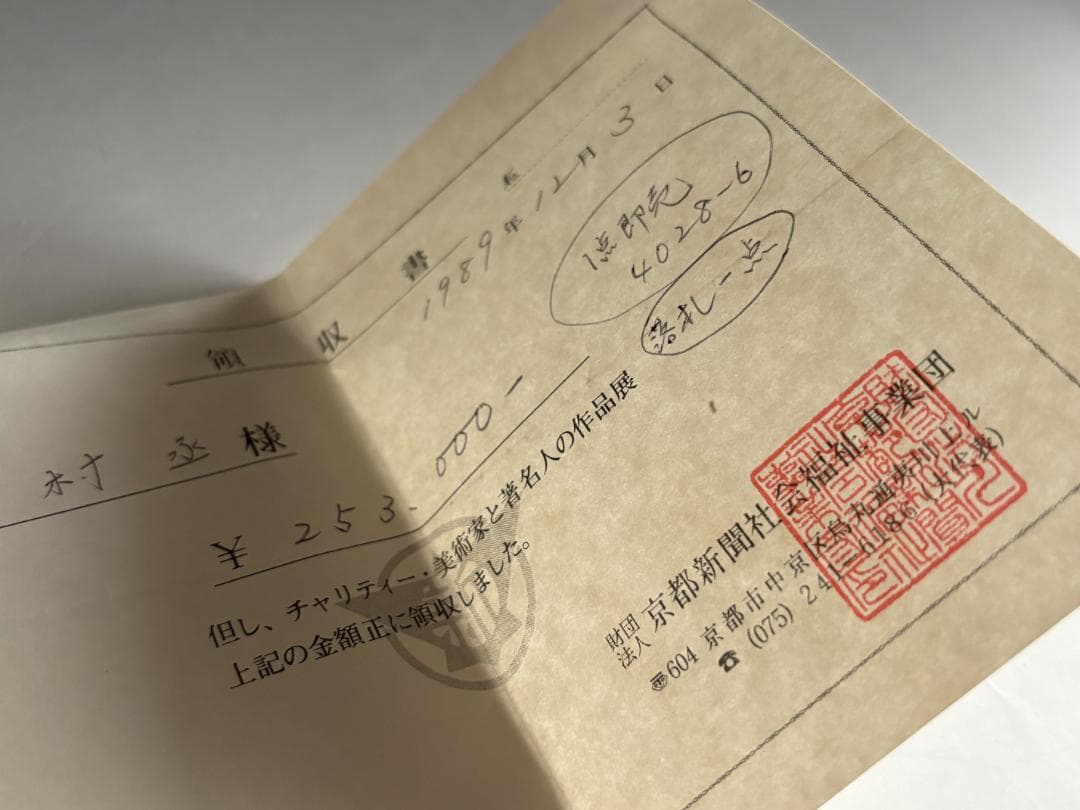 領収書
No.
1989年12月3日
1点即売
4028-6
落札一点
村 丞 様
¥253.000-
但し、チャリティー・美術家と著名人の作品展
上記の金額正に領収しました。
財団法人 京都新聞社会福祉事業団
〒604 京都市中京区烏丸通夷川上ル
☎(075) 241-6186(大代表)